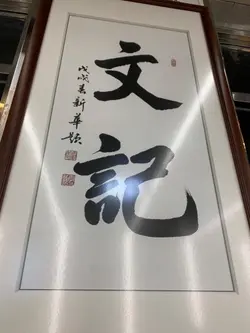 文記
戊戌黃新華題